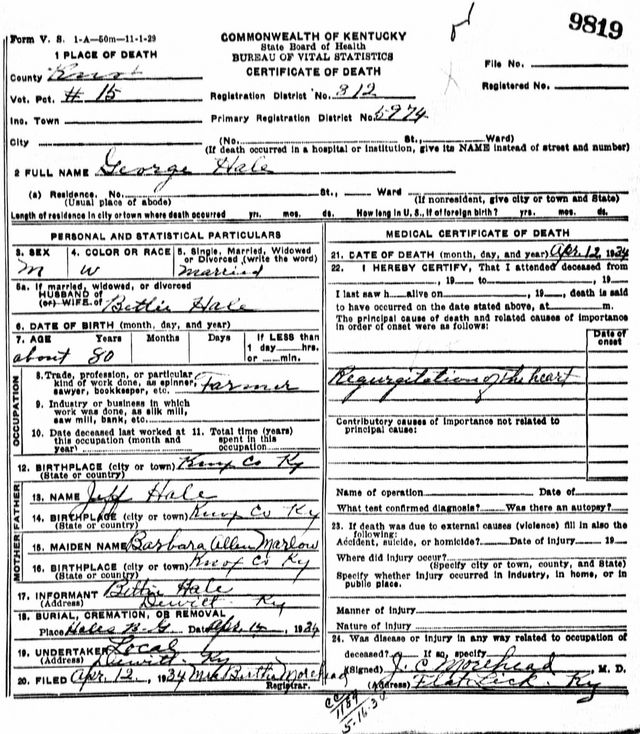 9819
Form V. S. 1-A—50m—11-1-29
COMMONWEALTH OF KENTUCKY
State Board of Health
BUREAU OF VITAL STATISTICS
CERTIFICATE OF DEATH
1 PLACE OF DEATH
County Knox
File No.
Registered No.
Vot. Pct. # 15
Registration District No. 312
Inc. Town
Primary Registration District No. 5974
City
(No. St., Ward)
(If death occurred in a hospital or institution, give its NAME instead of street and number)
2 FULL NAME George Hale
(a) Residence. No. St., Ward
(Usual place of abode) (If nonresident, give city or town and State)
Length of residence in city or town where death occurred yrs. mos. ds. How long in U. S., if of foreign birth? yrs. mos. ds.
PERSONAL AND STATISTICAL PARTICULARS
3. SEX 4. COLOR OR RACE 5. Single, Married, Widowed or Divorced (write the word)
M W Married
5a. If married, widowed, or divorced
HUSBAND of
(or) WIFE of Bettie Hale
6. DATE OF BIRTH (month, day, and year)
7. AGE Years Months Days If LESS than
1 day hrs.
or min.
about 80
OCCUPATION
8. Trade, profession, or particular
kind of work done, as spinner,
sawyer, bookkeeper, etc. Farmer
9. Industry or business in which
work was done, as silk mill,
saw mill, bank, etc.
10. Date deceased last worked at
this occupation (month and
year)
11. Total time (years)
spent in this
occupation
12. BIRTHPLACE (city or town) Knox Co Ky
(State or country)
FATHER
13. NAME Jeff Hale
14. BIRTHPLACE (city or town) Knox Co Ky
(State or country)
MOTHER
15. MAIDEN NAME Barbara Allen Marlow
16. BIRTHPLACE (city or town) Knox Co Ky
(State or country)
17. INFORMANT Bettie Hale
(Address) Dewitt Ky
18. BURIAL, CREMATION, OR REMOVAL
Place Hales B.G. Date Apr. 12, 1934
19. UNDERTAKER Local
(Address) Dewitt Ky
20. FILED Apr. 12, 1934 Mrs Birthie Morehead
Registrar.
MEDICAL CERTIFICATE OF DEATH
21. DATE OF DEATH (month, day, and year) Apr 12 1934
22. I HEREBY CERTIFY, That I attended deceased from
, 19 to , 19
I last saw h alive on , 19 , death is said
to have occurred on the date stated above, at m.
The principal cause of death and related causes of importance
in order of onset were as follows:
Date of onset
Regurgitation of the heart
Contributory causes of importance not related to
principal cause:
Name of operation Date of
What test confirmed diagnosis? Was there an autopsy?
23. If death was due to external causes (violence) fill in also the
following:
Accident, suicide, or homicide? Date of injury 19
Where did injury occur?
(Specify city or town, county, and State)
Specify whether injury occurred in industry, in home, or in
public place.
Manner of injury
Nature of injury
24. Was disease or injury in any way related to occupation of
deceased? If so, specify
(Signed) J. C. Morehead, M. D.
(Address) Flat Lick. Ky